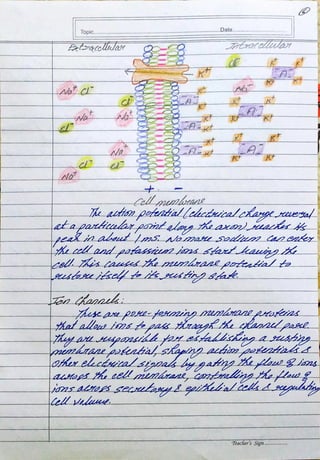 Topic
Date
Extracellular
Intracellular
Cl⁻
K⁺
K⁺
K⁺
A⁻
Na⁺
Cl⁻
K⁺
K⁺
Na⁺
K⁺
K⁺
Cl⁻
A⁻
K⁺
K⁺
A⁻
Na⁺
Na⁺
K⁺
K⁺
Cl⁻
A⁻
K⁺
K⁺
K⁺
K⁺
Na⁺
A⁻
A⁻
Cl⁻
Cl⁻
K⁺
K⁺
K⁺
Na⁺
+ -
Cell membrane
The action potential (electrical charge reversal
at a particular point along the axon) reaches its
peak in about 1 ms. No more sodium can enter
the cell and potassium ions start leaving the
cell. This causes the membrane potential to
restore itself to its resting state.
Ion Channels:
These are pore-forming membrane proteins
that allow ions to pass through the channel pore.
They are responsible for establishing a resting
membrane potential, shaping action potentials &
other electrical signals by gating the flow of ions
across the cell membrane, controlling the flow of
ions across secretory & epithelial cells & regulating
cell volume.
Teacher's Sign